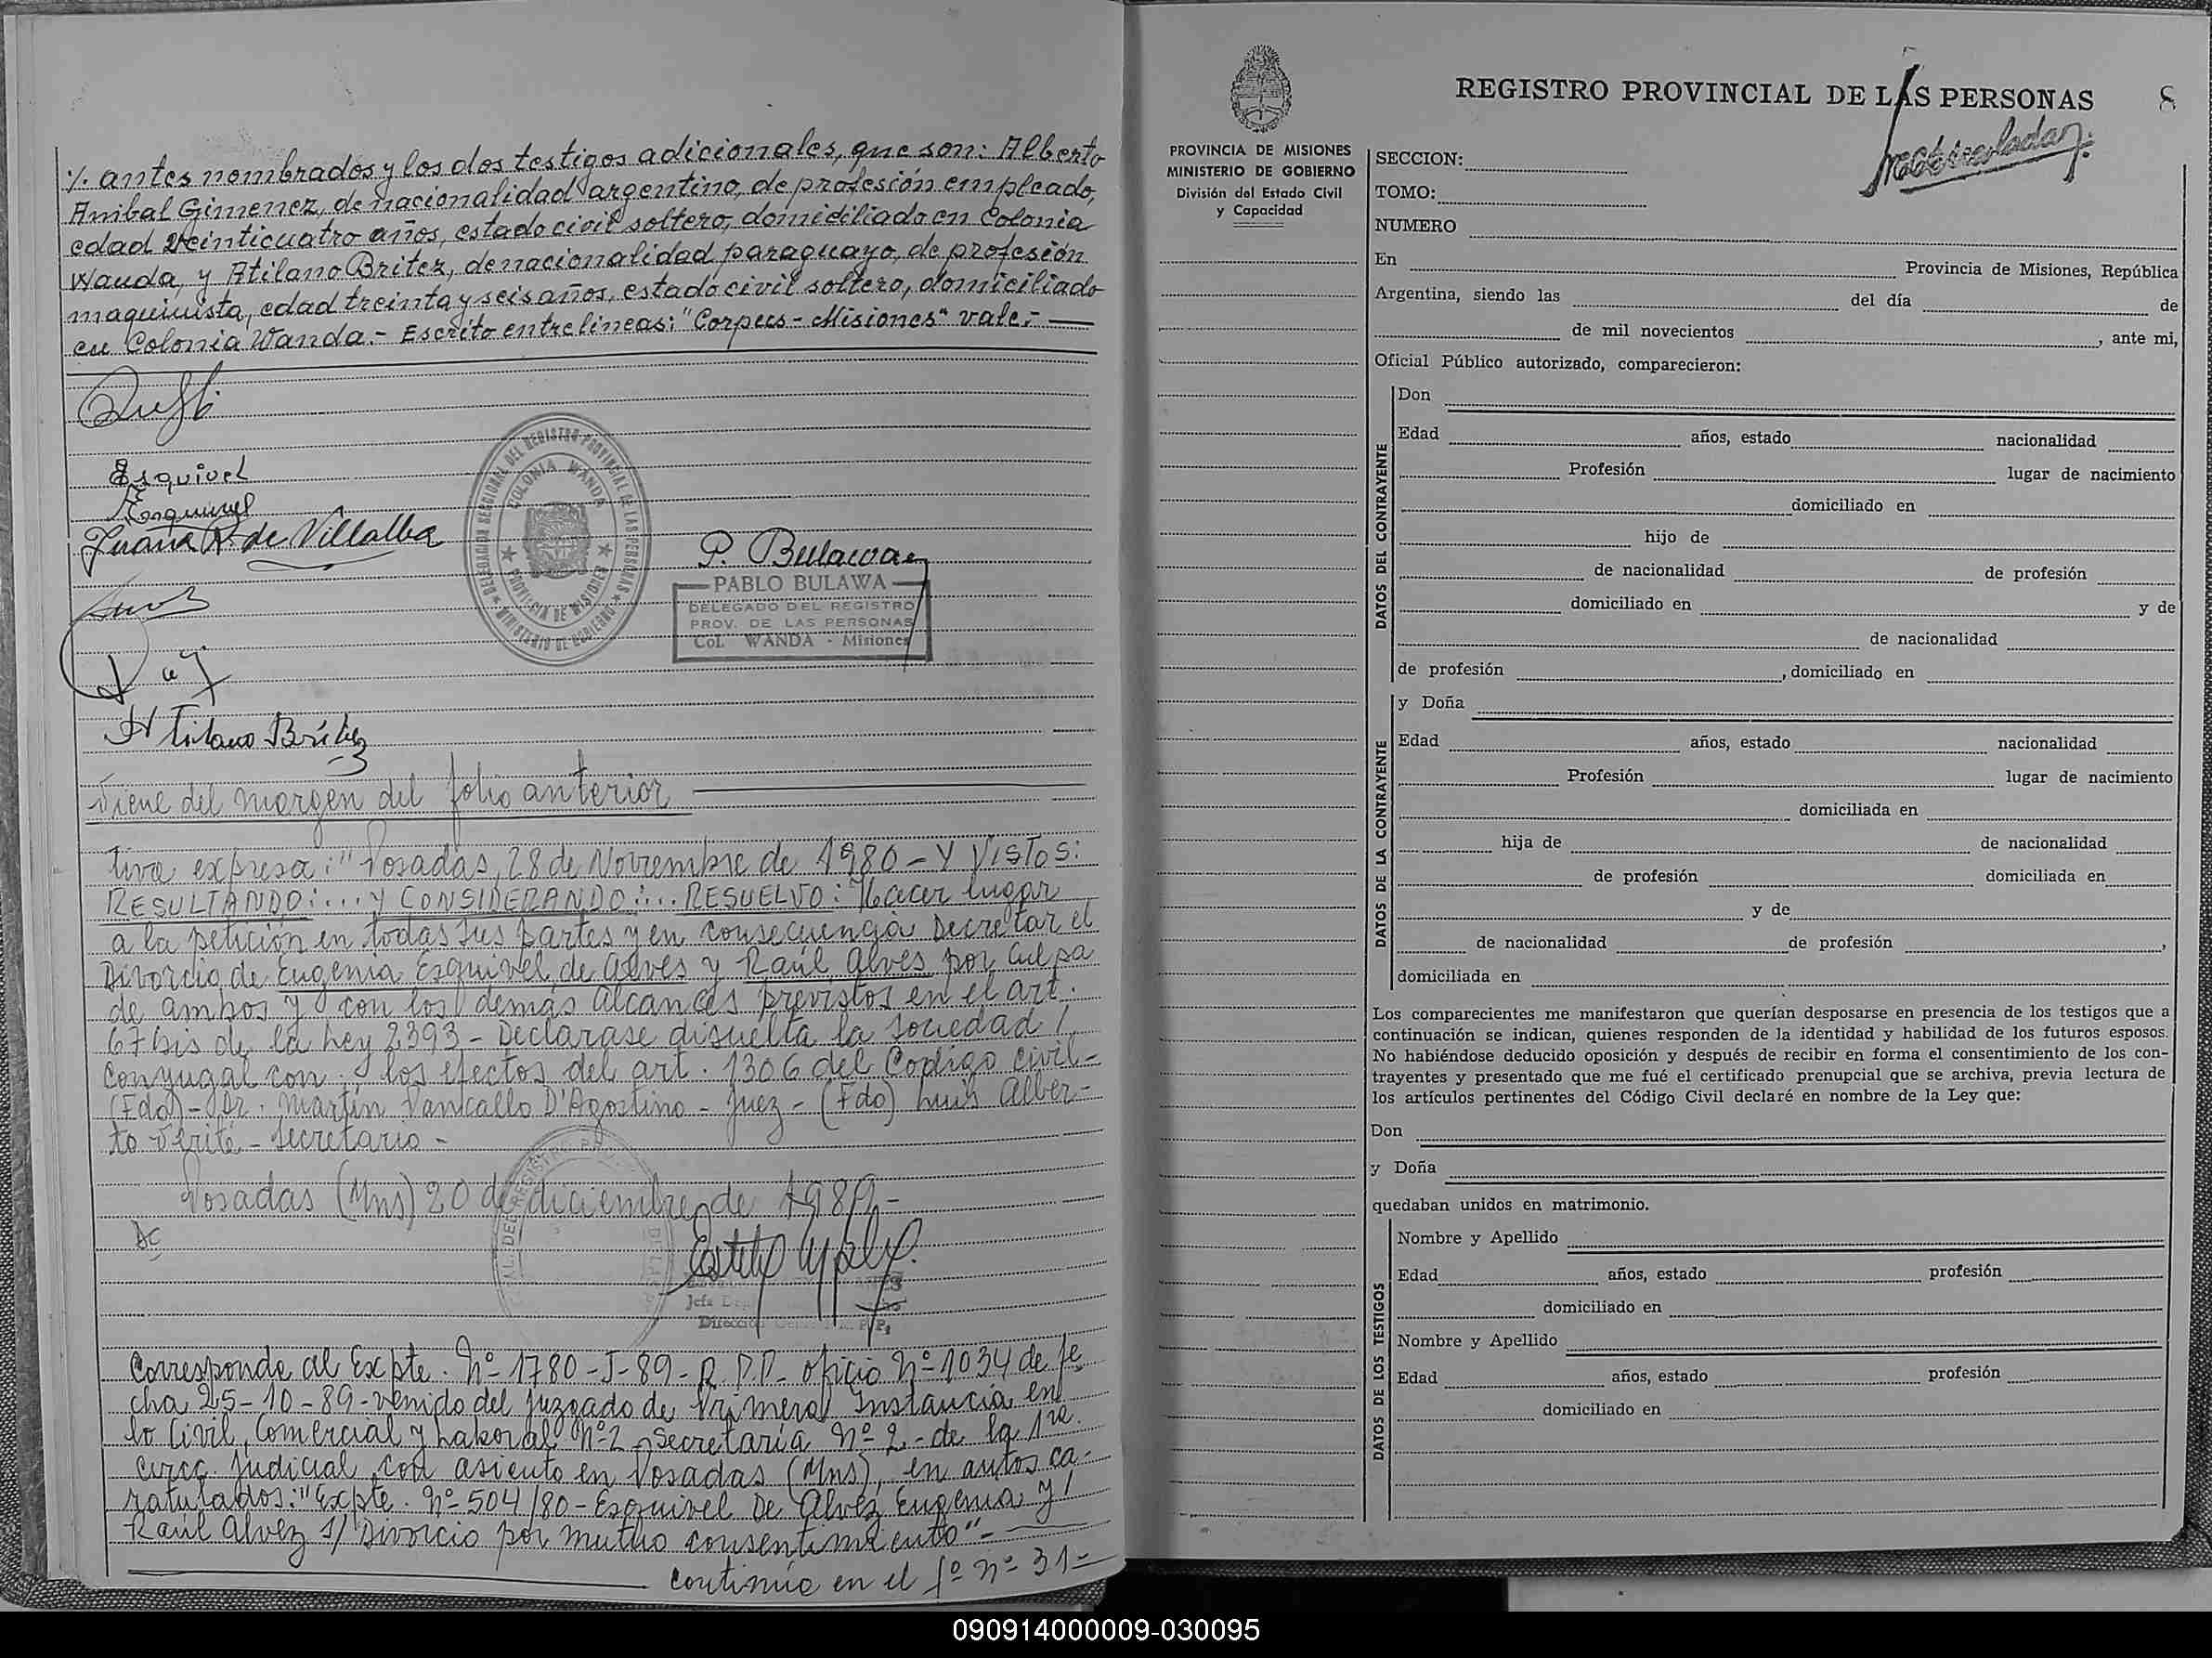 ./. antes nombrados y los dos testigos adicionales, que son: Alberto
Anibal Gimenez, de nacionalidad argentino, de profesión empleado,
edad veinticuatro años, estado civil soltero, domiciliado en Colonia
Wanda, y Atilano Britez, de nacionalidad paraguayo, de profesión
maquinista, edad treinta y seis años, estado civil soltero, domiciliado
en Colonia Wanda.- Escrito entrelineas: "Corpus - Misiones" vale.-
Esquivel
Esquivel
Juana R. de Villalba
DELEGACION SECCIONAL DEL REGISTRO PROVINCIAL DE LAS PERSONAS
MINISTERIO DE GOBIERNO
COLONIA WANDA
PROVINCIA DE MISIONES
P. Bulawa
PABLO BULAWA
DELEGADO DEL REGISTRO
PROV. DE LAS PERSONAS
Col. WANDA - Misiones
Atilano Britez
Viene del margen del folio anterior
tiva expresa: "Posadas, 28 de Noviembre de 1980 - Y VISTOS:
RESULTANDO:... Y CONSIDERANDO:... RESUELVO: Hacer lugar
a la petición en todas sus partes y en consecuencia Decretar el
Divorcio de Eugenia Esquivel de Alves y Raúl Alves por culpa
de ambos y con los demás alcances previstos en el art.
67 bis de la Ley 2393 - Declarase disuelta la sociedad /
conyugal con los efectos del art. 1306 del Codigo civil -
(Fdo) - Dr. Martín D'Agostino - Juez - (Fdo) Luis Alber-
to - Secretario -
Posadas (Mns) 20 de diciembre de 1989 -
Corresponde al Expte. Nº 1780 - J - 89 - R.P.P. oficio Nº 1034 de fe
cha 25 - 10 - 89 - venido del Juzgado de Primera Instancia en
lo Civil, Comercial y Laboral Nº 2 - Secretaría Nº 2 - de la 1ra.
Circc. Judicial con asiento en Posadas (Mns), en autos ca-
ratulados: "Expte. Nº 504/80 - Esquivel De Alvez Eugenia y /
Raúl Alvez s/ Divorcio por mutuo consentimiento" -
continúa en el fº nº 31 -
REGISTRO PROVINCIAL DE LAS PERSONAS
8
PROVINCIA DE MISIONES
MINISTERIO DE GOBIERNO
División del Estado Civil
y Capacidad
SECCION:
TOMO:
NUMERO
En Provincia de Misiones, República
Argentina, siendo las del día de
de mil novecientos , ante mi,
Oficial Público autorizado, comparecieron:
DATOS DEL CONTRAYENTE
Don
Edad años, estado nacionalidad
Profesión lugar de nacimiento
domiciliado en
hijo de
de nacionalidad de profesión
domiciliado en y de
de nacionalidad
de profesión , domiciliado en
DATOS DE LA CONTRAYENTE
y Doña
Edad años, estado nacionalidad
Profesión lugar de nacimiento
domiciliada en
hija de de nacionalidad
de profesión domiciliada en
y de
de nacionalidad de profesión ,
domiciliada en
Los comparecientes me manifestaron que querían desposarse en presencia de los testigos que a
continuación se indican, quienes responden de la identidad y habilidad de los futuros esposos.
No habiéndose deducido oposición y después de recibir en forma el consentimiento de los con-
trayentes y presentado que me fué el certificado prenupcial que se archiva, previa lectura de
los artículos pertinentes del Código Civil declaré en nombre de la Ley que:
Don
y Doña
quedaban unidos en matrimonio.
DATOS DE LOS TESTIGOS
Nombre y Apellido
Edad años, estado profesión
domiciliado en
Nombre y Apellido
Edad años, estado profesión
domiciliado en
090914000009-030095